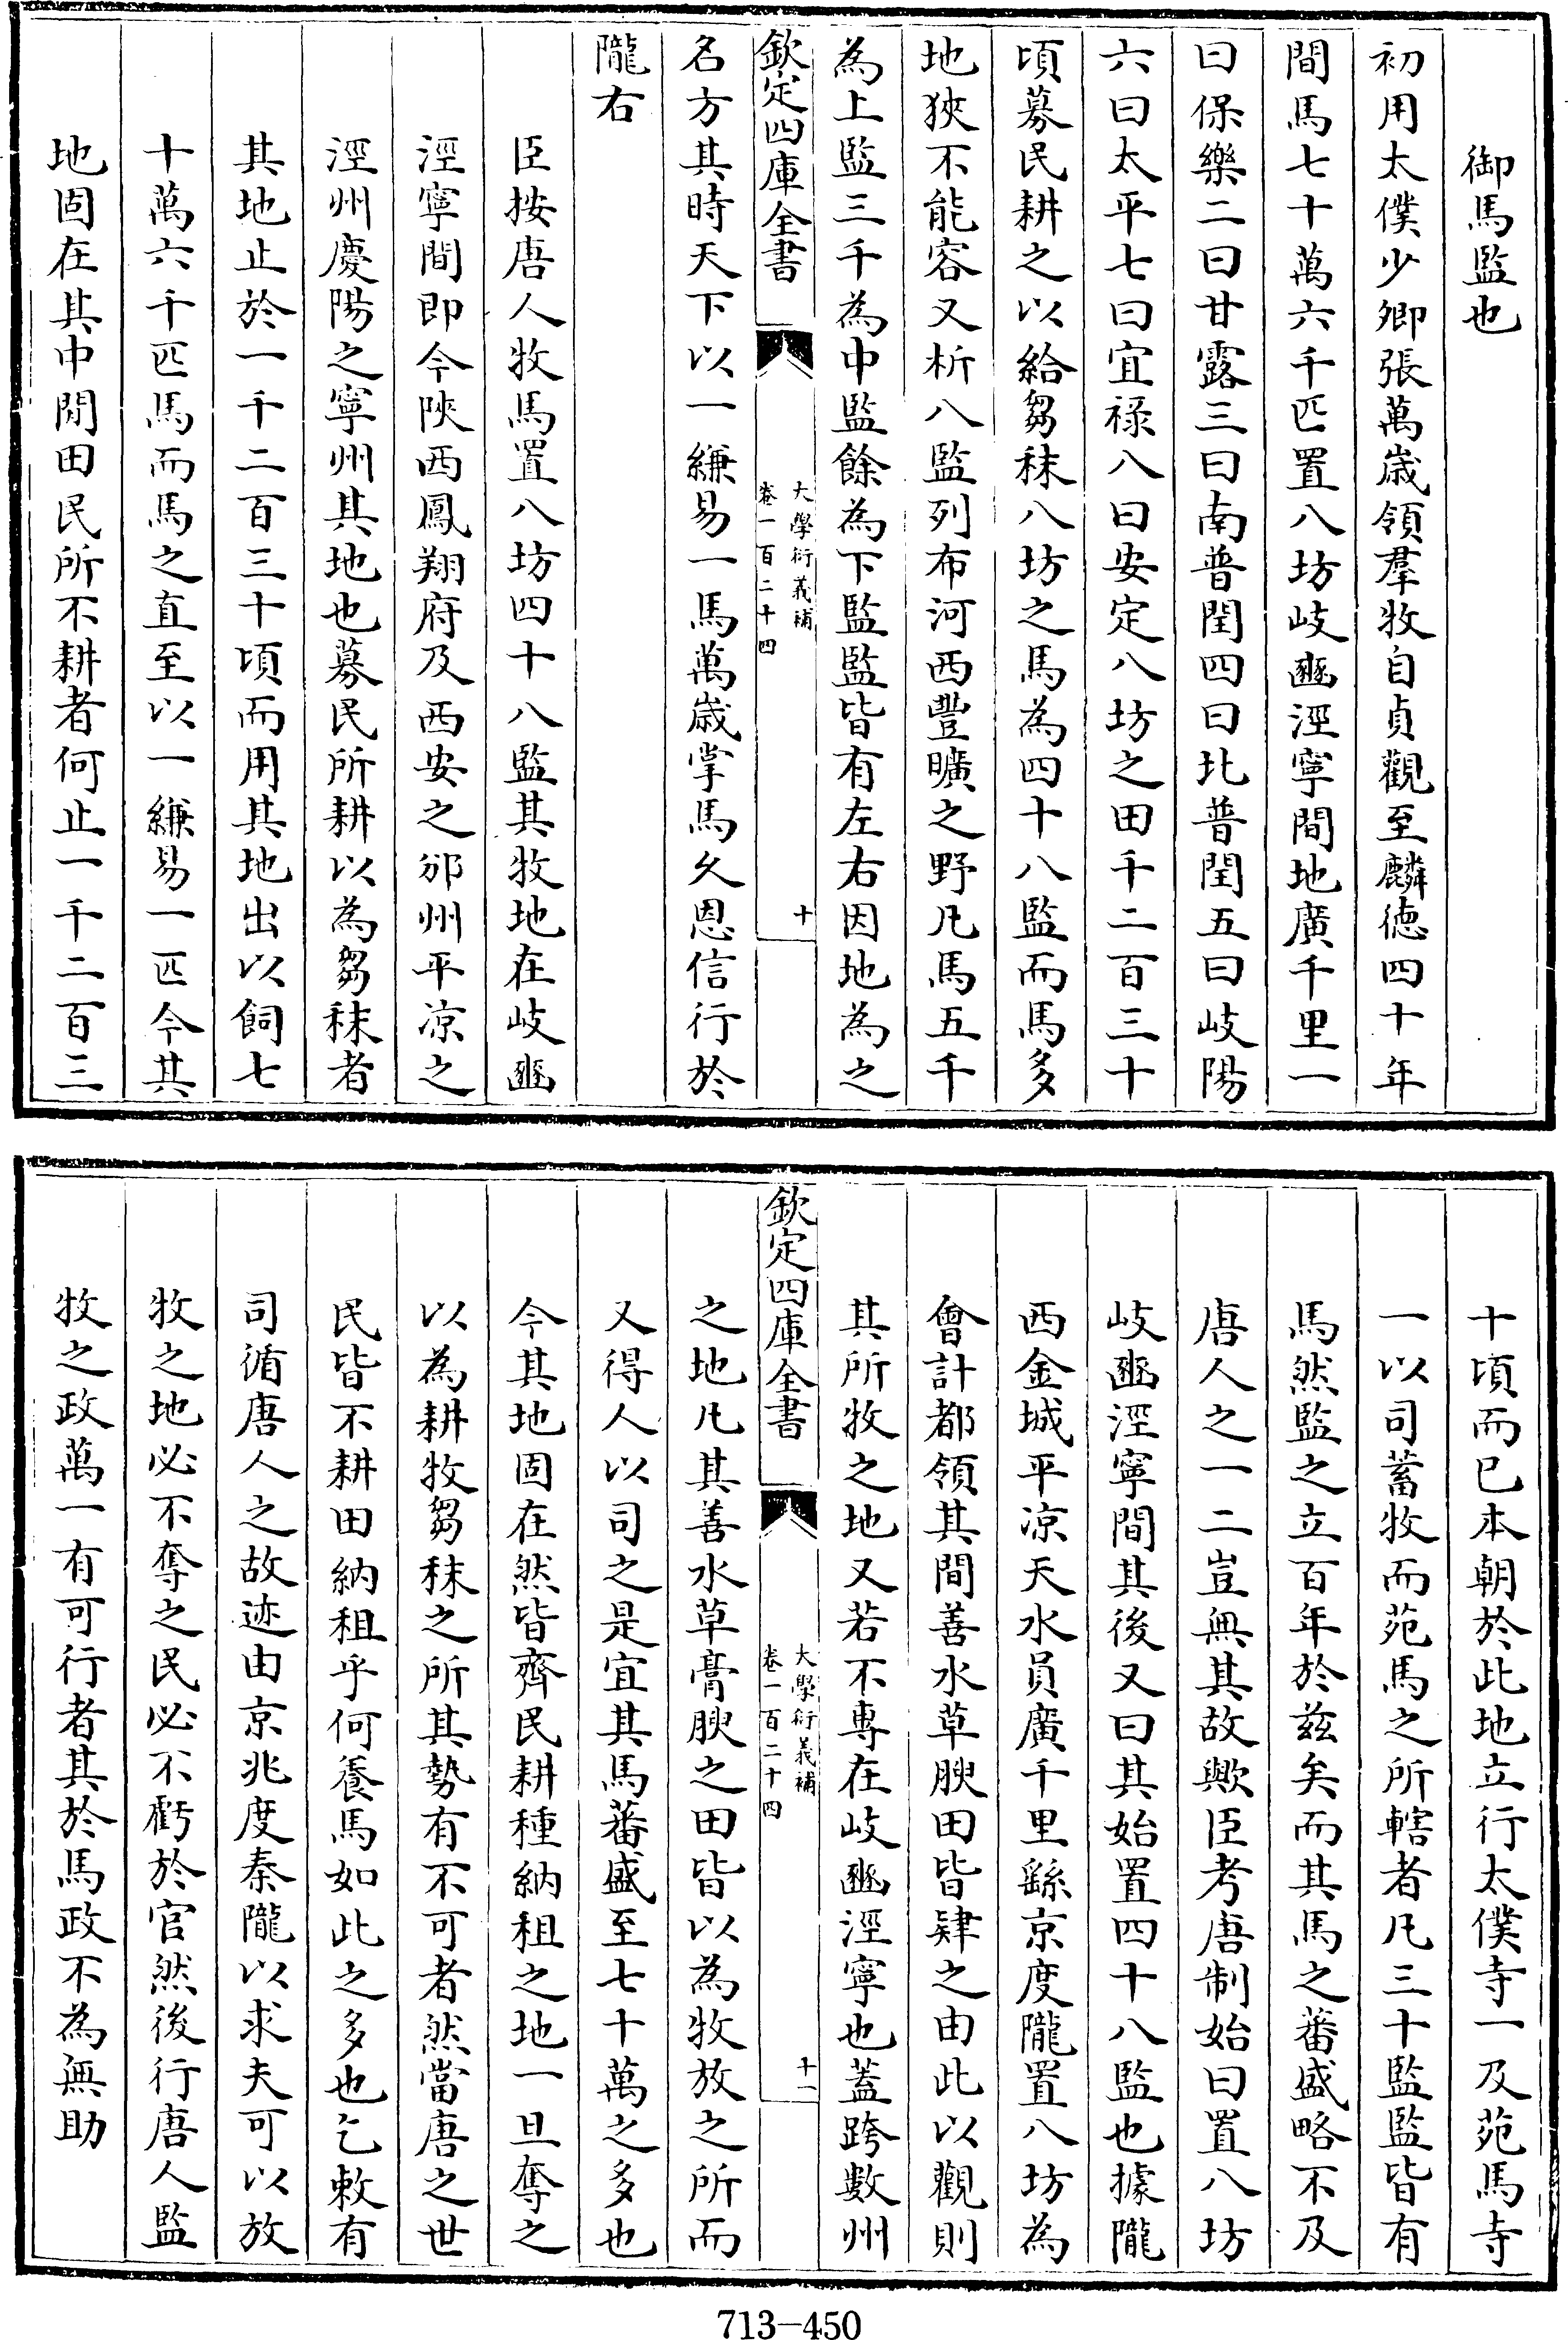 御馬監也
初用太僕少卿張萬歲領羣牧自貞觀至麟徳四十年
間馬七十萬六千匹置八坊岐豳涇寧間地廣千里一
曰保樂二曰甘露三曰南普閏四曰北普閏五曰岐陽
六曰太平七曰宜禄八曰安定八坊之田千二百三十
頃募民耕之以給芻秣八坊之馬為四十八監而馬多
地狹不能容又析八監列布河西豐曠之野凡馬五千
為上監三千為中監餘為下監監皆有左右因地為之
欽定四庫全書
大學衍義補
卷一百二十四
十
名方其時天下以一縑易一馬萬歲掌馬久恩信行於
隴右
臣按唐人牧馬置八坊四十八監其牧地在岐豳
涇寧間即今陜西鳳翔府及西安之邠州平涼之
涇州慶陽之寧州其地也募民所耕以為芻秣者
其地止於一千二百三十頃而用其地出以飼七
十萬六千匹馬而馬之直至以一縑易一匹今其
地固在其中閒田民所不耕者何止一千二百三
十頃而已本朝於此地立行太僕寺一及苑馬寺
一以司蓄牧而苑馬之所轄者凡三十監監皆有
馬然監之立百年於兹矣而其馬之蕃盛略不及
唐人之一二豈無其故歟臣考唐制始曰置八坊
岐豳涇寧間其後又曰其始置四十八監也據隴
西金城平涼天水員廣千里繇京度隴置八坊為
會計都領其間善水草腴田皆肄之由此以觀則
其所牧之地又若不專在岐豳涇寧也蓋跨數州
欽定四庫全書
大學衍義補
卷一百二十四
十一
之地凡其善水草膏腴之田皆以為牧放之所而
又得人以司之是宜其馬蕃盛至七十萬之多也
今其地固在然皆齊民耕種納租之地一旦奪之
以為耕牧芻秣之所其勢有不可者然當唐之世
民皆不耕田納租乎何養馬如此之多也乞敕有
司循唐人之故迹由京兆度秦隴以求夫可以放
牧之地必不奪之民必不虧於官然後行唐人監
牧之政萬一有可行者其於馬政不為無助
713-450